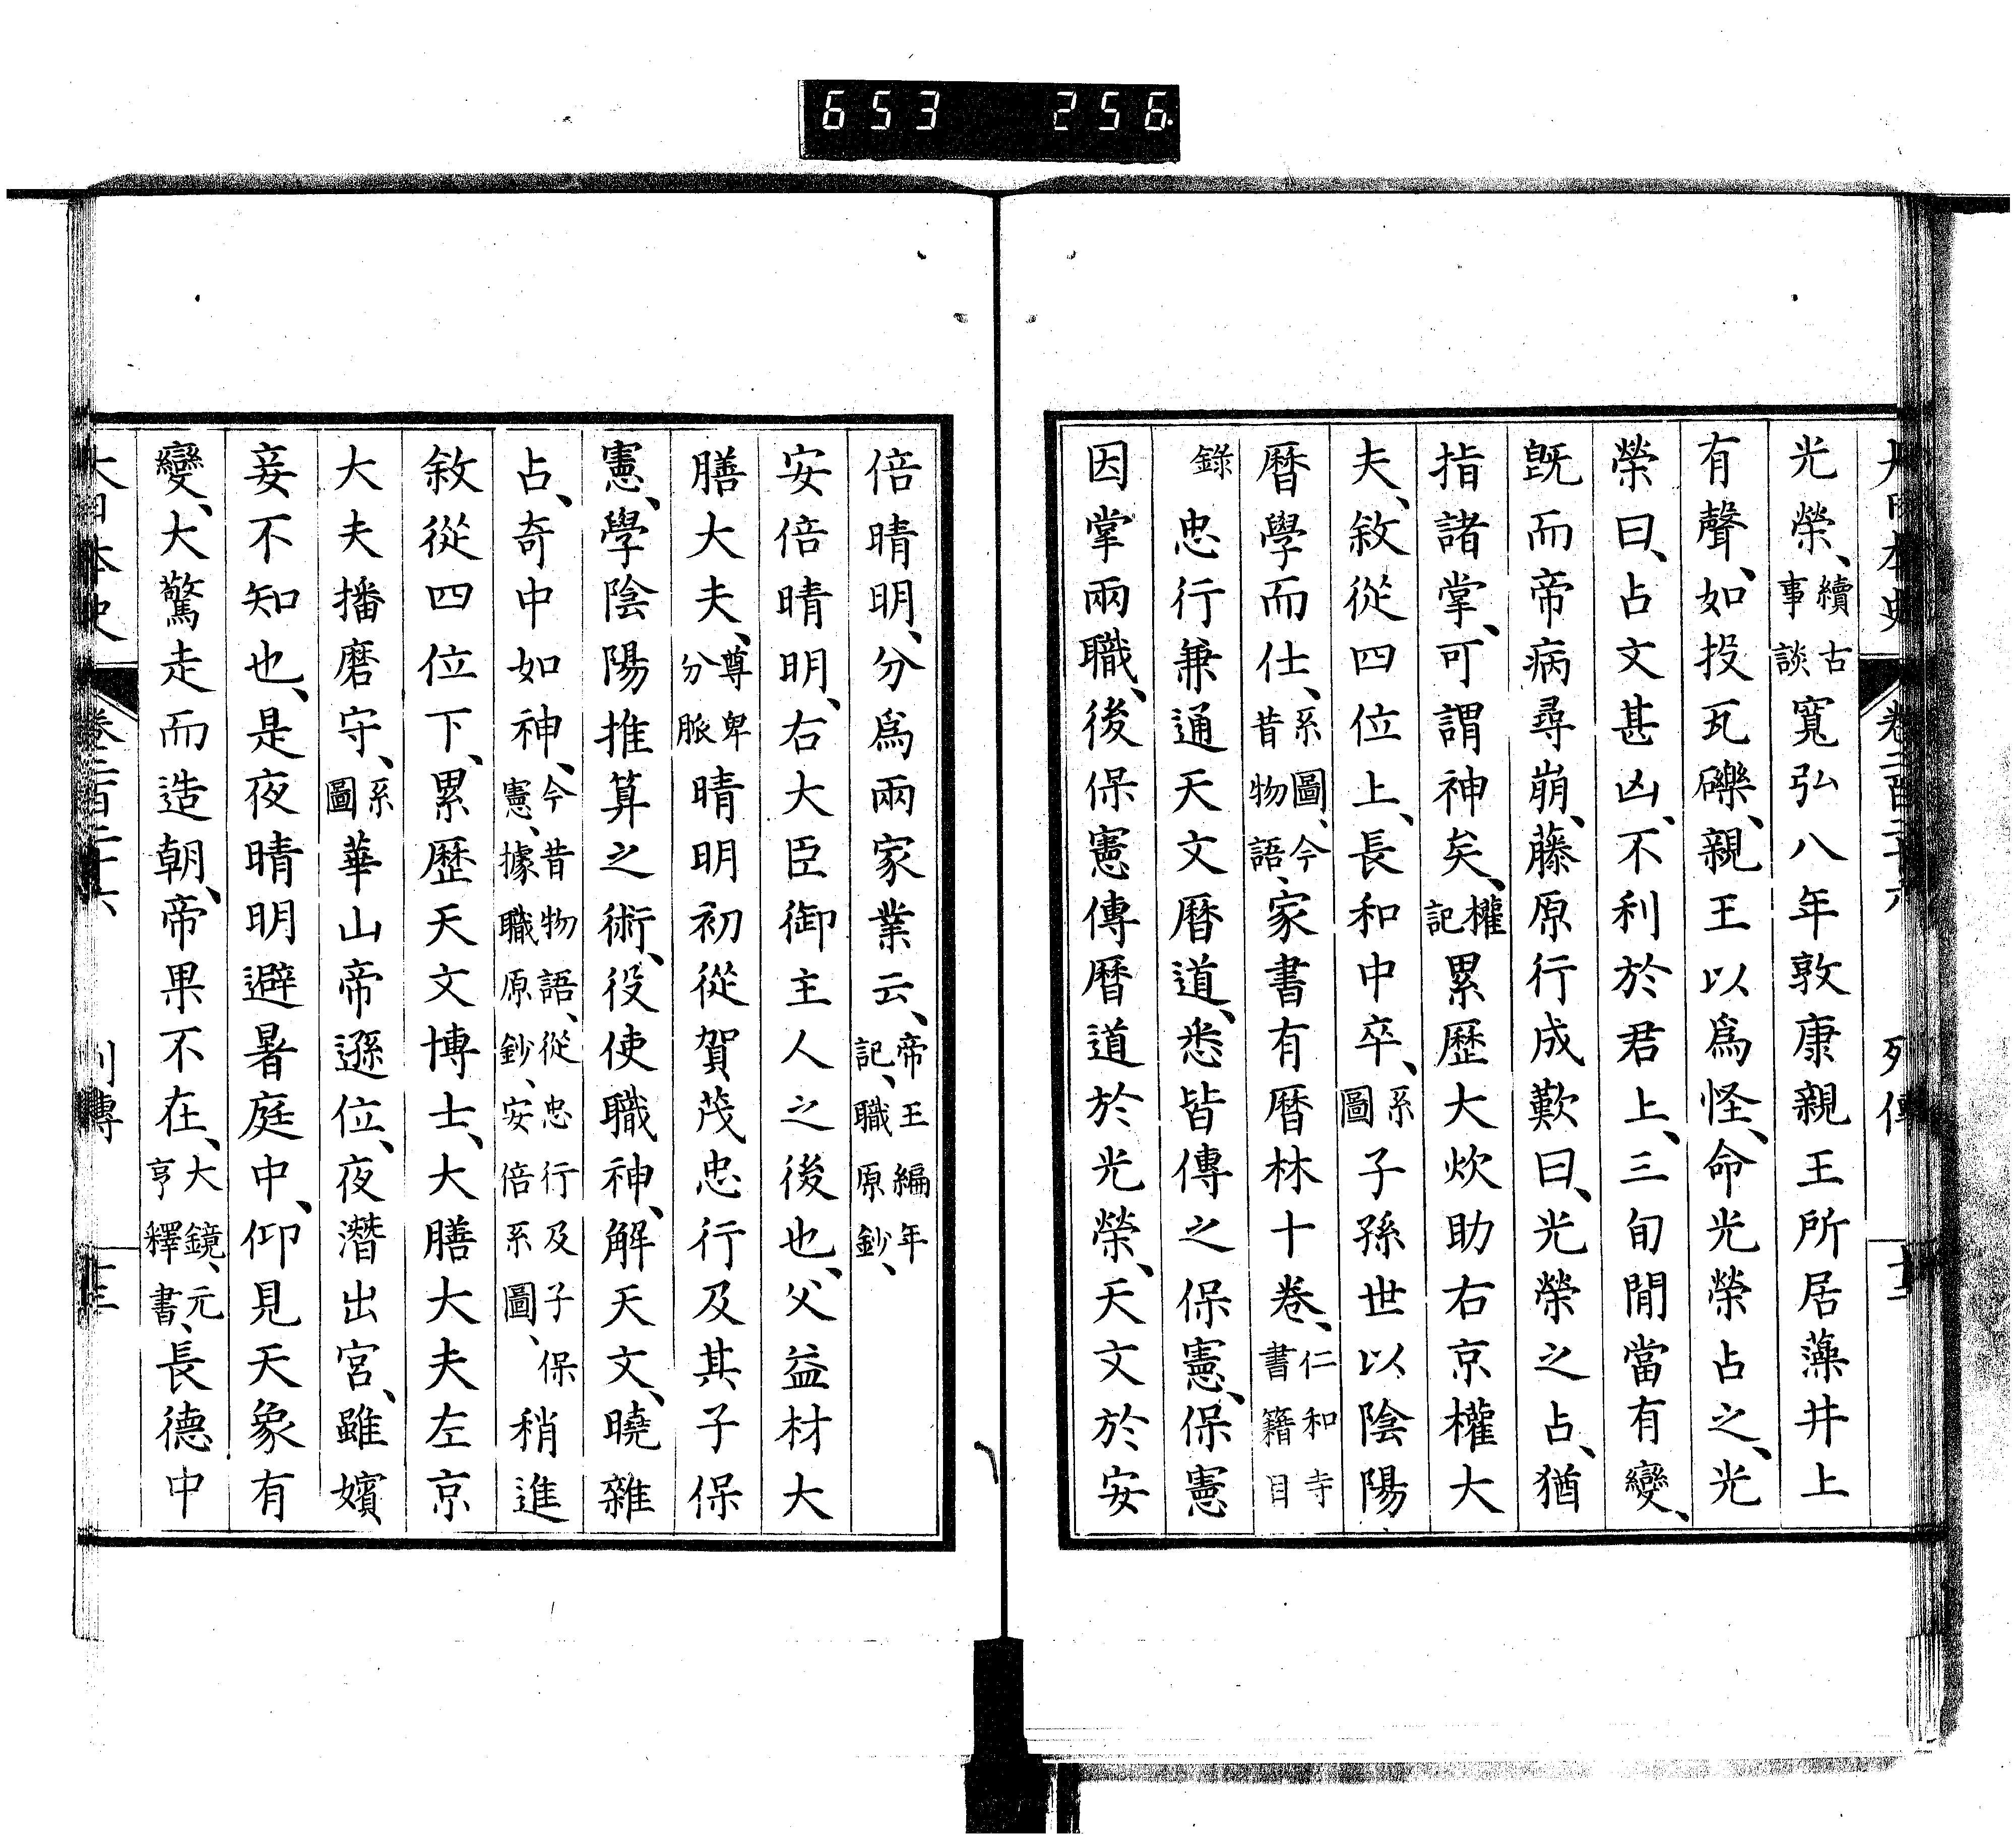 653 256
大日本史 卷二百二十六 列傳 十二
光榮、續古事談寬弘八年敦康親王所居藻井上
有聲、如投瓦礫、親王以爲怪、命光榮占之、光
榮曰、占文甚凶、不利於君上、三旬閒當有變、
旣而帝病尋崩、藤原行成歎曰、光榮之占、猶
指諸掌、可謂神矣、權記累歷大炊助右京權大
夫、敘從四位上、長和中卒、系圖子孫世以陰陽
曆學而仕、系圖、今昔物語、家書有曆林十卷、仁和寺書籍目
錄忠行兼通天文曆道、悉皆傳之保憲、保憲
因掌兩職、後保憲傳曆道於光榮、天文於安
倍晴明、分爲兩家業云、帝王編年記、職原鈔、
安倍晴明、右大臣御主人之後也、父益材大
膳大夫、尊卑分脈晴明初從賀茂忠行及其子保
憲、學陰陽推算之術、役使職神、解天文、曉雜
占、奇中如神、今昔物語、從忠行及子保憲、據職原鈔、安倍系圖、稍進
敘從四位下、累歷天文博士、大膳大夫左京
大夫播磨守、系圖華山帝遜位、夜潛出宮、雖嬪
妾不知也、是夜晴明避暑庭中、仰見天象有
變、大驚走而造朝、帝果不在、大鏡、元亨釋書、長德中
大日本史 卷二百二十六 列傳 十三